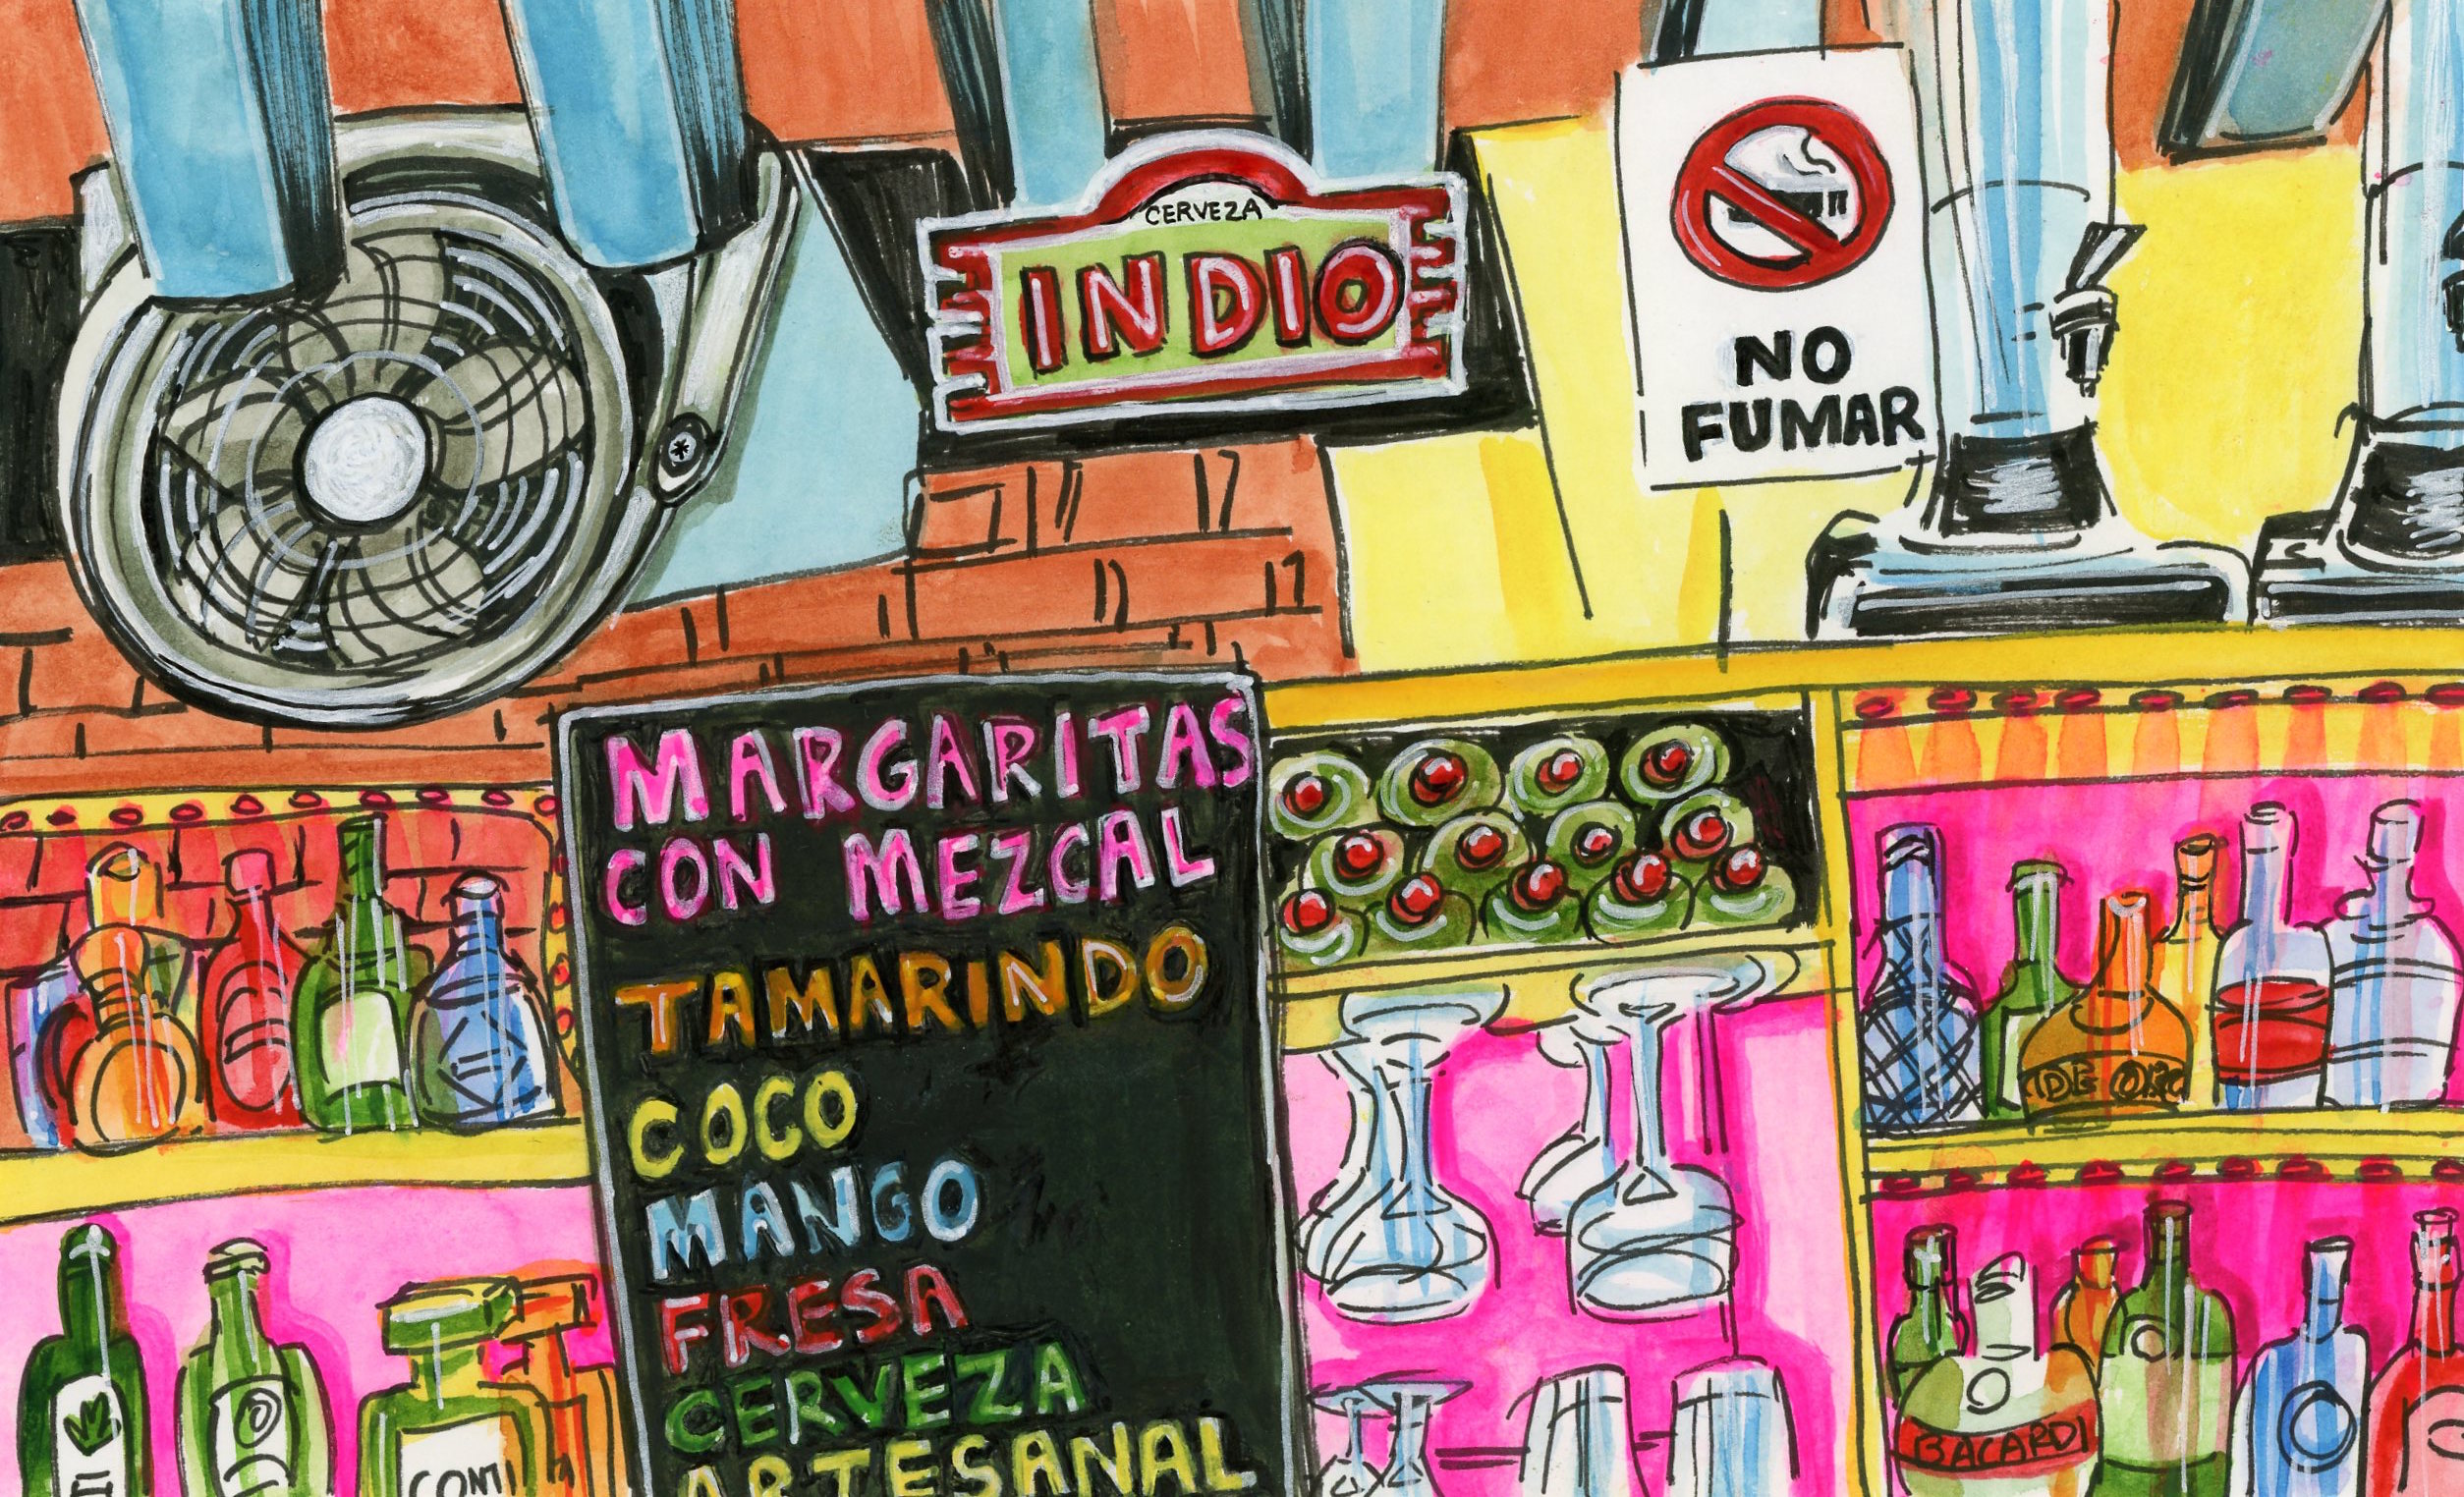 CERVEZA
INDIO
NO
FUMAR
MARGARITAS
CON MEZCAL
TAMARINDO
COCO
MANGO
FRESA
CERVEZA
ARTESANAL
DE ORO
BACARDI
CONTI